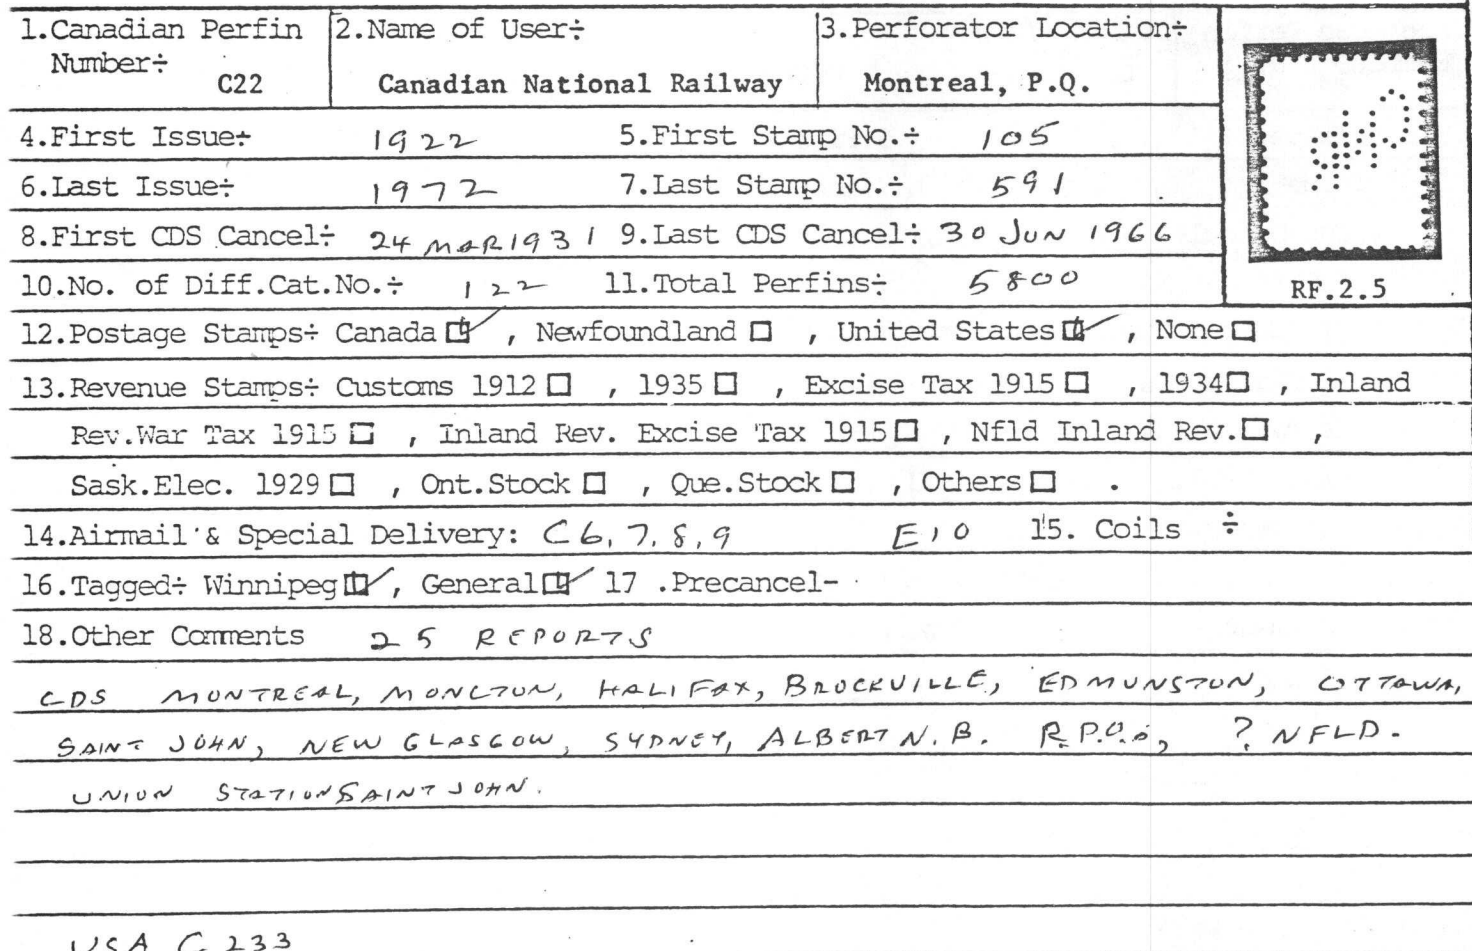 1.Canadian Perfin Number÷ C22
2.Name of User÷ Canadian National Railway
3.Perforator Location÷ Montreal, P.Q.
4.First Issue÷ 1922 5.First Stamp No.÷ 105
6.Last Issue÷ 1972 7.Last Stamp No.÷ 591
8.First CDS Cancel÷ 24 MAR 1931 9.Last CDS Cancel÷ 30 JUN 1966
10.No. of Diff.Cat.No.÷ 122 11.Total Perfins÷ 5800
RF.2.5
12.Postage Stamps÷ Canada ☑ , Newfoundland ☐ , United States ☑ , None ☐
13.Revenue Stamps÷ Customs 1912 ☐ , 1935 ☐ , Excise Tax 1915 ☐ , 1934 ☐ , Inland
Rev.War Tax 1915 ☐ , Inland Rev. Excise Tax 1915 ☐ , Nfld Inland Rev. ☐ ,
Sask.Elec. 1929 ☐ , Ont.Stock ☐ , Que.Stock ☐ , Others ☐ .
14.Airmail & Special Delivery: C6, 7, 8, 9 E10 15. Coils ÷
16.Tagged÷ Winnipeg ☑ , General ☑ 17 .Precancel-
18.Other Comments 25 REPORTS
CDS MONTREAL, MONCTON, HALIFAX, BROCKVILLE, EDMUNSTON, OTTAWA,
SAINT JOHN, NEW GLASGOW, SYDNEY, ALBERT N.B. R.P.O.s, ? NFLD.
UNION STATION SAINT JOHN.
USA C 233